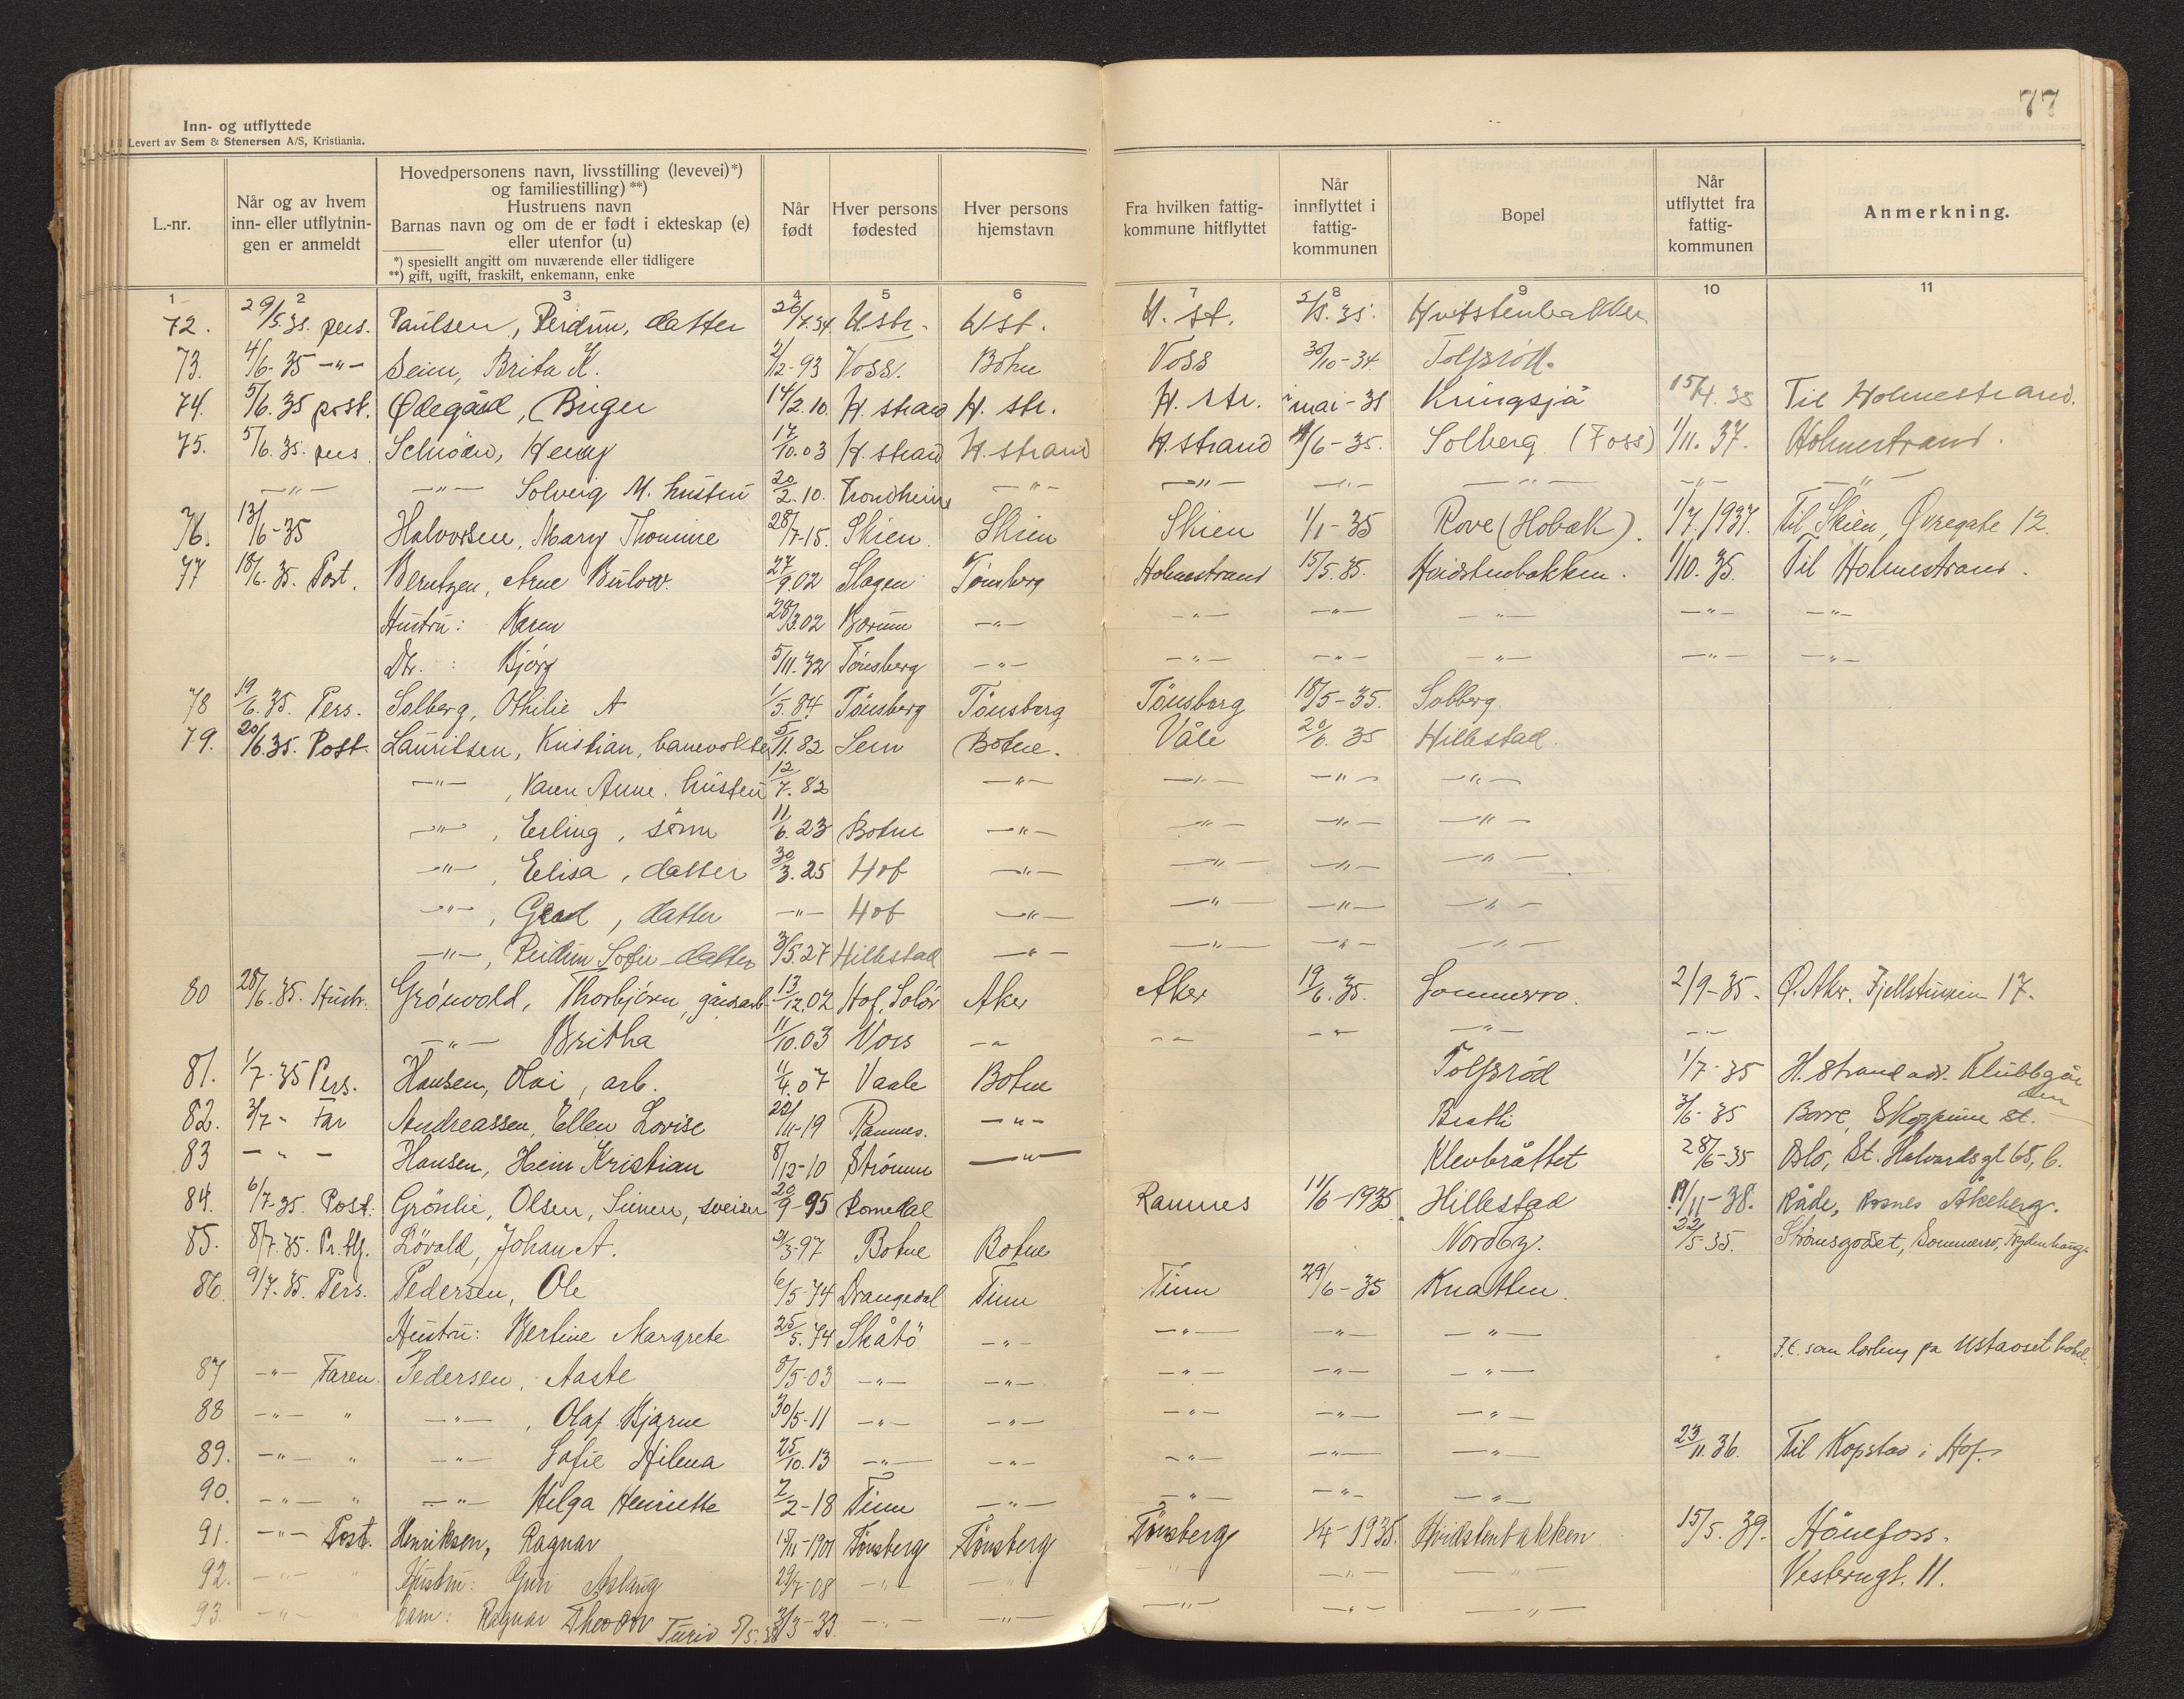 77
Inn- og utflyttede
Levert av Sem & Stenersen A/S, Kristiania.
L.-nr.
Når og av hvem inn- eller utflytnin- gen er anmeldt
Hovedpersonens navn, livsstilling (levevei)*)
og familiestilling) **)
Hustruens navn
Barnas navn og om de er født i ekteskap (e)
eller utenfor (u)
*) spesiellt angitt om nuværende eller tidligere
**) gift, ugift, fraskilt, enkemann, enke
Når født
Hver persons fødested
Hver persons hjemstavn
Fra hvilken fattig- kommune hitflyttet
Når innflyttet i fattig- kommunen
Bopel
Når utflyttet fra fattig- kommunen
Anmerkning.
1 2 3 4 5 6 7 8 9 10 11
72. 29/5.35. pers. Paulsen, Reidun, datter 26/7.34 Hstr. Hst. H. st. 2/5.35. Hvitstenbakken
73. 4/6-35 -"- Seim, Brita K. 2/12-93 Voss. Botne Voss 30/10-34 Tolfsrød.
74. 5/6.35 post. Ødegård, Birger 14/2.10. H. strand H. str. H. str. i mai-31 Kringsjå 15/4.38 Til Holmestrand.
75. 5/6.35. pers. Schrøder, Henry 17/10.03 H. strand H. strand H. strand 4/6-35. Solberg (Foss) 1/11.37. Holmestrand.
-"- -"- Solveig M. hustru 20/2.10. Trondheim -"- -"- -"- -"- -"- -"-
76. 13/6-35 Halvorsen, Mary Thomine 28/7-15. Skien. Skien Skien 1/1-35 Rove (Hobæk). 1/7.1937. Til Skien, Øvregate 12.
77 18/6.35. Post. Berntzen, Arne Bülow. 27/9.02 Slagen Tønsberg Holmestrand 15/5.35. Hvidstenbakken. 1/10.35. Til Holmestrand.
Hustru: Karen 28/3.02 Bærum -"- -"- -"- -"- -"- -"-
Dtr. : Bjørg 5/11.32 Tønsberg -"- -"- -"- -"- -"- -"-
78 19/6.35. Pers. Solberg, Othilie A 1/5.84. Tønsberg Tønsberg Tønsberg 18/5-35. Solberg.
79. 20/6.35. Post. Lauritsen, Kristian, banevokter 5/11.82 Sem Botne. Våle 20/6.35 Hillestad.
-"-, Karen Anne. hustru 12/7.82 -"- -"- -"- -"-
-"-, Erling, sønn 11/6.23 Botne -"- -"- -"- -"-
-"-, Elisa, datter 30/3.25 Hof -"- -"- -"- -"-
-"-, Gerd, datter -"- Hof -"- -"- -"- -"-
-"-, Reidun Sofie datter 3/5.27 Hillestad -"- -"- -"- -"-
80 28/6.35. Hustr. Grønvold, Thorbjørn, gårdsarb. 13/12.02 Hof, Solør Aker Aker 19/6.35. Sommerro. 2/9-35. Ø. Aker. Fjellstuveien 17.
-"- Britha 11/10.03 Voss -"- -"- -"- -"- -"-
81. 1/7-35 Pers. Hansen, Olai, arb. 11/4.07 Vaale Botne Tolfsrød 1/7-35 H. strand adr. Klubbgården
82. 3/7 - Far Andreassen, Ellen Lovise 22/11-19 Ramnes. -"- Bratli 3/6-35 Borre, Skoppum st.
83 - " - Hansen, Hein Kristian 8/12-10 Strømm -"- Klevbråttet 28/6-35 Oslo, St. Halvardsgt 65, b.
84. 6/7-35. Post. Grönlie, Olsen, Simen, sveiser 20/9-95 Romedal Ramnes 11/6-1935. Hillestad 19/11-38. Råde, Rosnes Åkeberg.
85. 8/7.35. Pr. tlf. Lövald, Johan A. 2/3-97 Botne Botne Nordby. 22/5-35. Strømsgodset, Sommerro, Frydenhaug.
86. 9/7-35. Pers. Pedersen, Ole 6/5-74 Drangedal Tinn Tinn 29/6-35 Knatten.
Hustru: Bertine Margrete 25/5.74 Skåtö -"- -"- -"- -"-
87 -"- Faren. Pedersen, Aaste 8/5-03 -"- -"- -"- -"- -"- som lærling på Ustaoset hotel.
88 -"- " -"-, Olaf Bjarne 30/5-11 -"- -"- -"- -"- -"-
89. -"- " -"- Sofie Hilena 25/10.13 -"- -"- -"- -"- -"- 23/11.36. Til Kopstad i Hof.
90. -"- " -"- Helga Henriette 2/2-18 Tinn -"- -"- -"- -"-
91. -"- Post. Henriksen, Ragnar 18/11-1901 Tønsberg Tønsberg Tønsberg 1/4-1935. Hvidstenbakken 15/5.39. Hönefoss.
92. -"- " Hustru: Guri Aslaug 29/7-08 -"- -"- -"- -"- -"- Vesterngt. 11.
93. -"- " barn: Ragnar Theodor 3/3-33. -"- -"- -"- -"- -"-
Turid 5/5.38